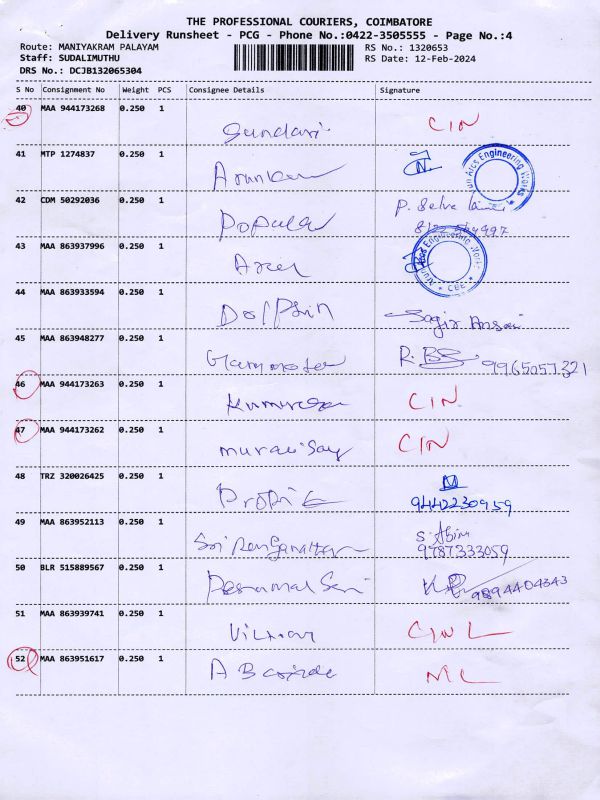 THE PROFESSIONAL COURIERS, COIMBATORE
Delivery Runsheet - PCG - Phone No.:0422-3505555 - Page No.:4
Route: MANIYAKRAM PALAYAM RS No.: 1320653
Staff: SUDALIMUTHU RS Date: 12-Feb-2024
DRS No.: DCJB132065304
S No Consignment No Weight PCS Consignee Details Signature
40 MAA 944173268 0.250 1 Sundari CIN
41 MTP 1274837 0.250 1
Engineering Works
42 CDM 50292036 0.250 1 Popular P. Selva
43 MAA 863937996 0.250 1
Engineering Works
* CBE *
44 MAA 863933594 0.250 1 Dolphin Sagir Ansari
45 MAA 863948277 0.250 1 9965057321
46 MAA 944173263 0.250 1 CIN
47 MAA 944173262 0.250 1 CIN
48 TRZ 320026425 0.250 1 9442230959
49 MAA 863952113 0.250 1 Sri S. Abin
9787333059
50 BLR 515889567 0.250 1 9894404343
51 MAA 863939741 0.250 1 CIN L
52 MAA 863951617 0.250 1 AB NL